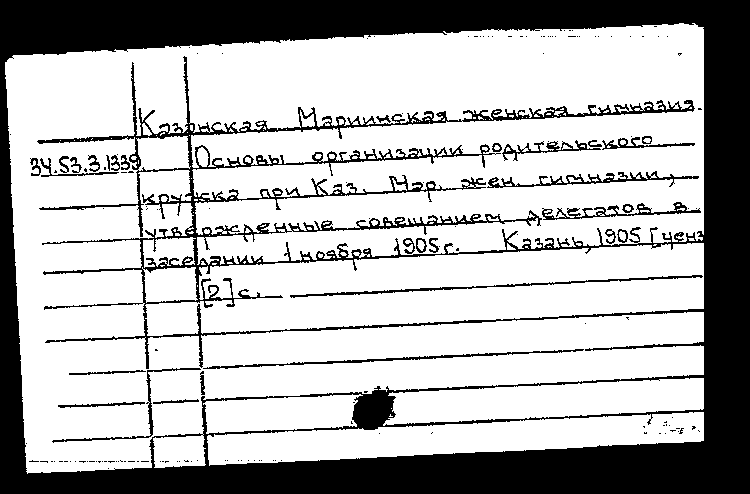 Казанская Мариинская женская гимназия.
34.53.3.1339. Основы организации родительского
кружка при Каз. Мар. жен. гимназии,
утвержденные совещанием делегатов в
заседании 1 ноября 1905 г. Казань, 1905 [ценз
[2] с.